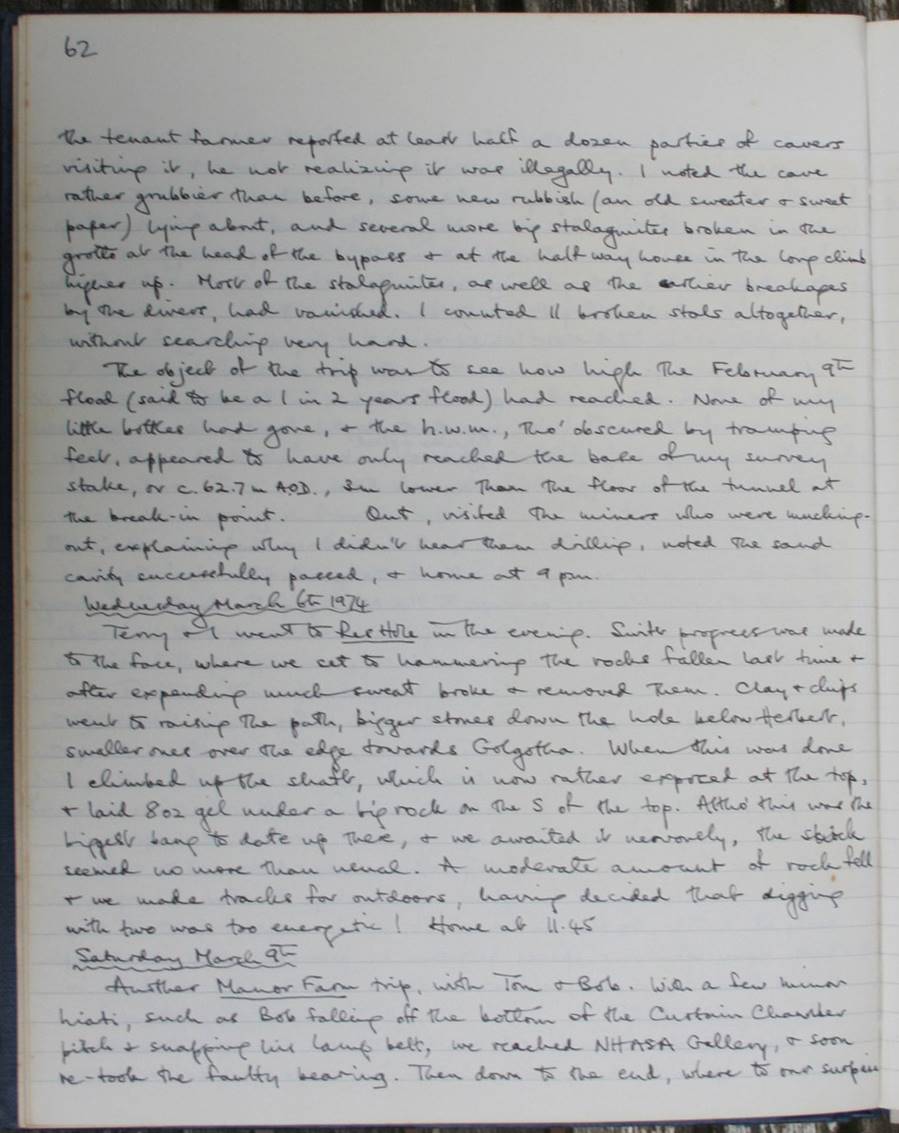 62
the tenant farmer reported at least half a dozen parties of cavers
visiting it, he not realizing it was illagally. I noted the cave
rather grubbier than before, some new rubbish (an old sweater & sweet
paper) lying about, and several more big stalagmites broken in the
grotto at the head of the bypass & at the half way house in the long climb
higher up. Most of the stalagmites, as well as the earlier breakages
by the divers, had vanished. I counted 11 broken stals altogether,
without searching very hard.
The object of the trip was to see how high the February 9th
flood (said to be a 1 in 2 years flood) had reached. None of my
little bottles had gone, & the h.w.m., tho' obscured by tramping
feet, appeared to have only reached the base of my survey
stake, or c. 62.7m A.O.D., 3m lower than the floor of the tunnel at
the break-in point. Out, visited the miners who were mucking-
out, explaining why I didn't hear them drilling, noted the sand
cavity successfully passed, & home at 9 pm.
Wednesday March 6th 1974
Terry & I went to Res Hole in the evening. Swift progress was made
to the face, where we set to hammering the rocks fallen last time &
after expending much sweat broke & removed them. Clay & chips
went to raising the path, bigger stones down the hole below Herbert,
smaller ones over the edge towards Golgotha. When this was done
I climbed up the shaft, which is now rather exposed at the top,
& laid 8oz gel under a big rock on the S of the top. Altho' this was the
biggest bang to date up there, & we awaited it nervously, the
seemed no more than usual. A moderate amount of rock fell
& we made tracks for outdoors, having decided that digging
with two was too energetic! Home at 11.45
Saturday March 9th
Another Manor Farm trip, with Tom & Bob. With a few minor
hiati, such as Bob falling off the bottom of the Curtain Chamber
pitch & snapping his lamp belt, we reached NHASA Gallery, & soon
re-took the faulty bearing. Then down to the end, where to our surprise